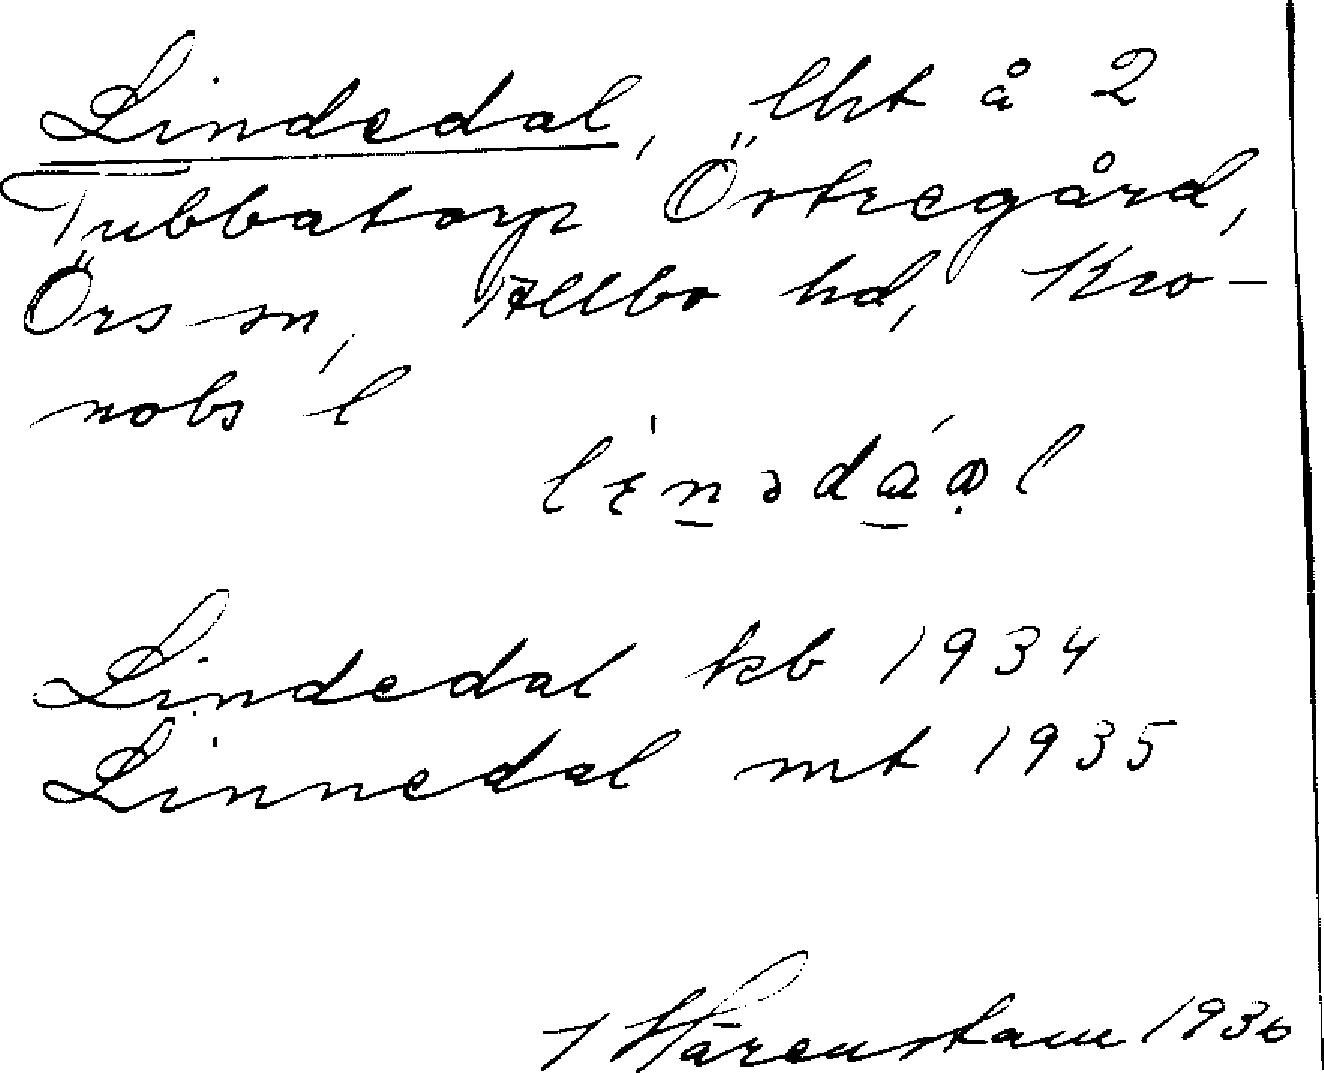 Lindedal, lht å 2
Tubbatorp Östregård,
Örs sn, Allbo hd, Kro-
nobs l
lɪ̀nədáɑl
Lindedal kb 1934
Linnedal mt 1935
Härenstam 1936